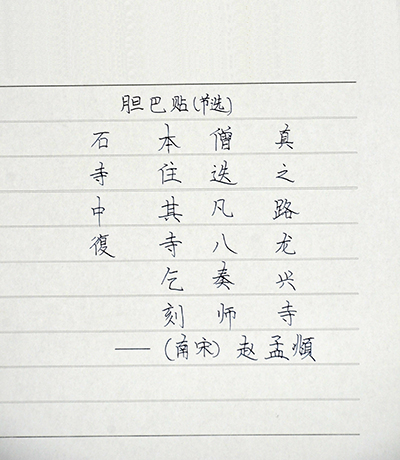 胆巴贴(节选)
真之路龙兴寺
僧迭凡八奏师
本住其寺乞刻
石寺中復
——(南宋)赵孟頫